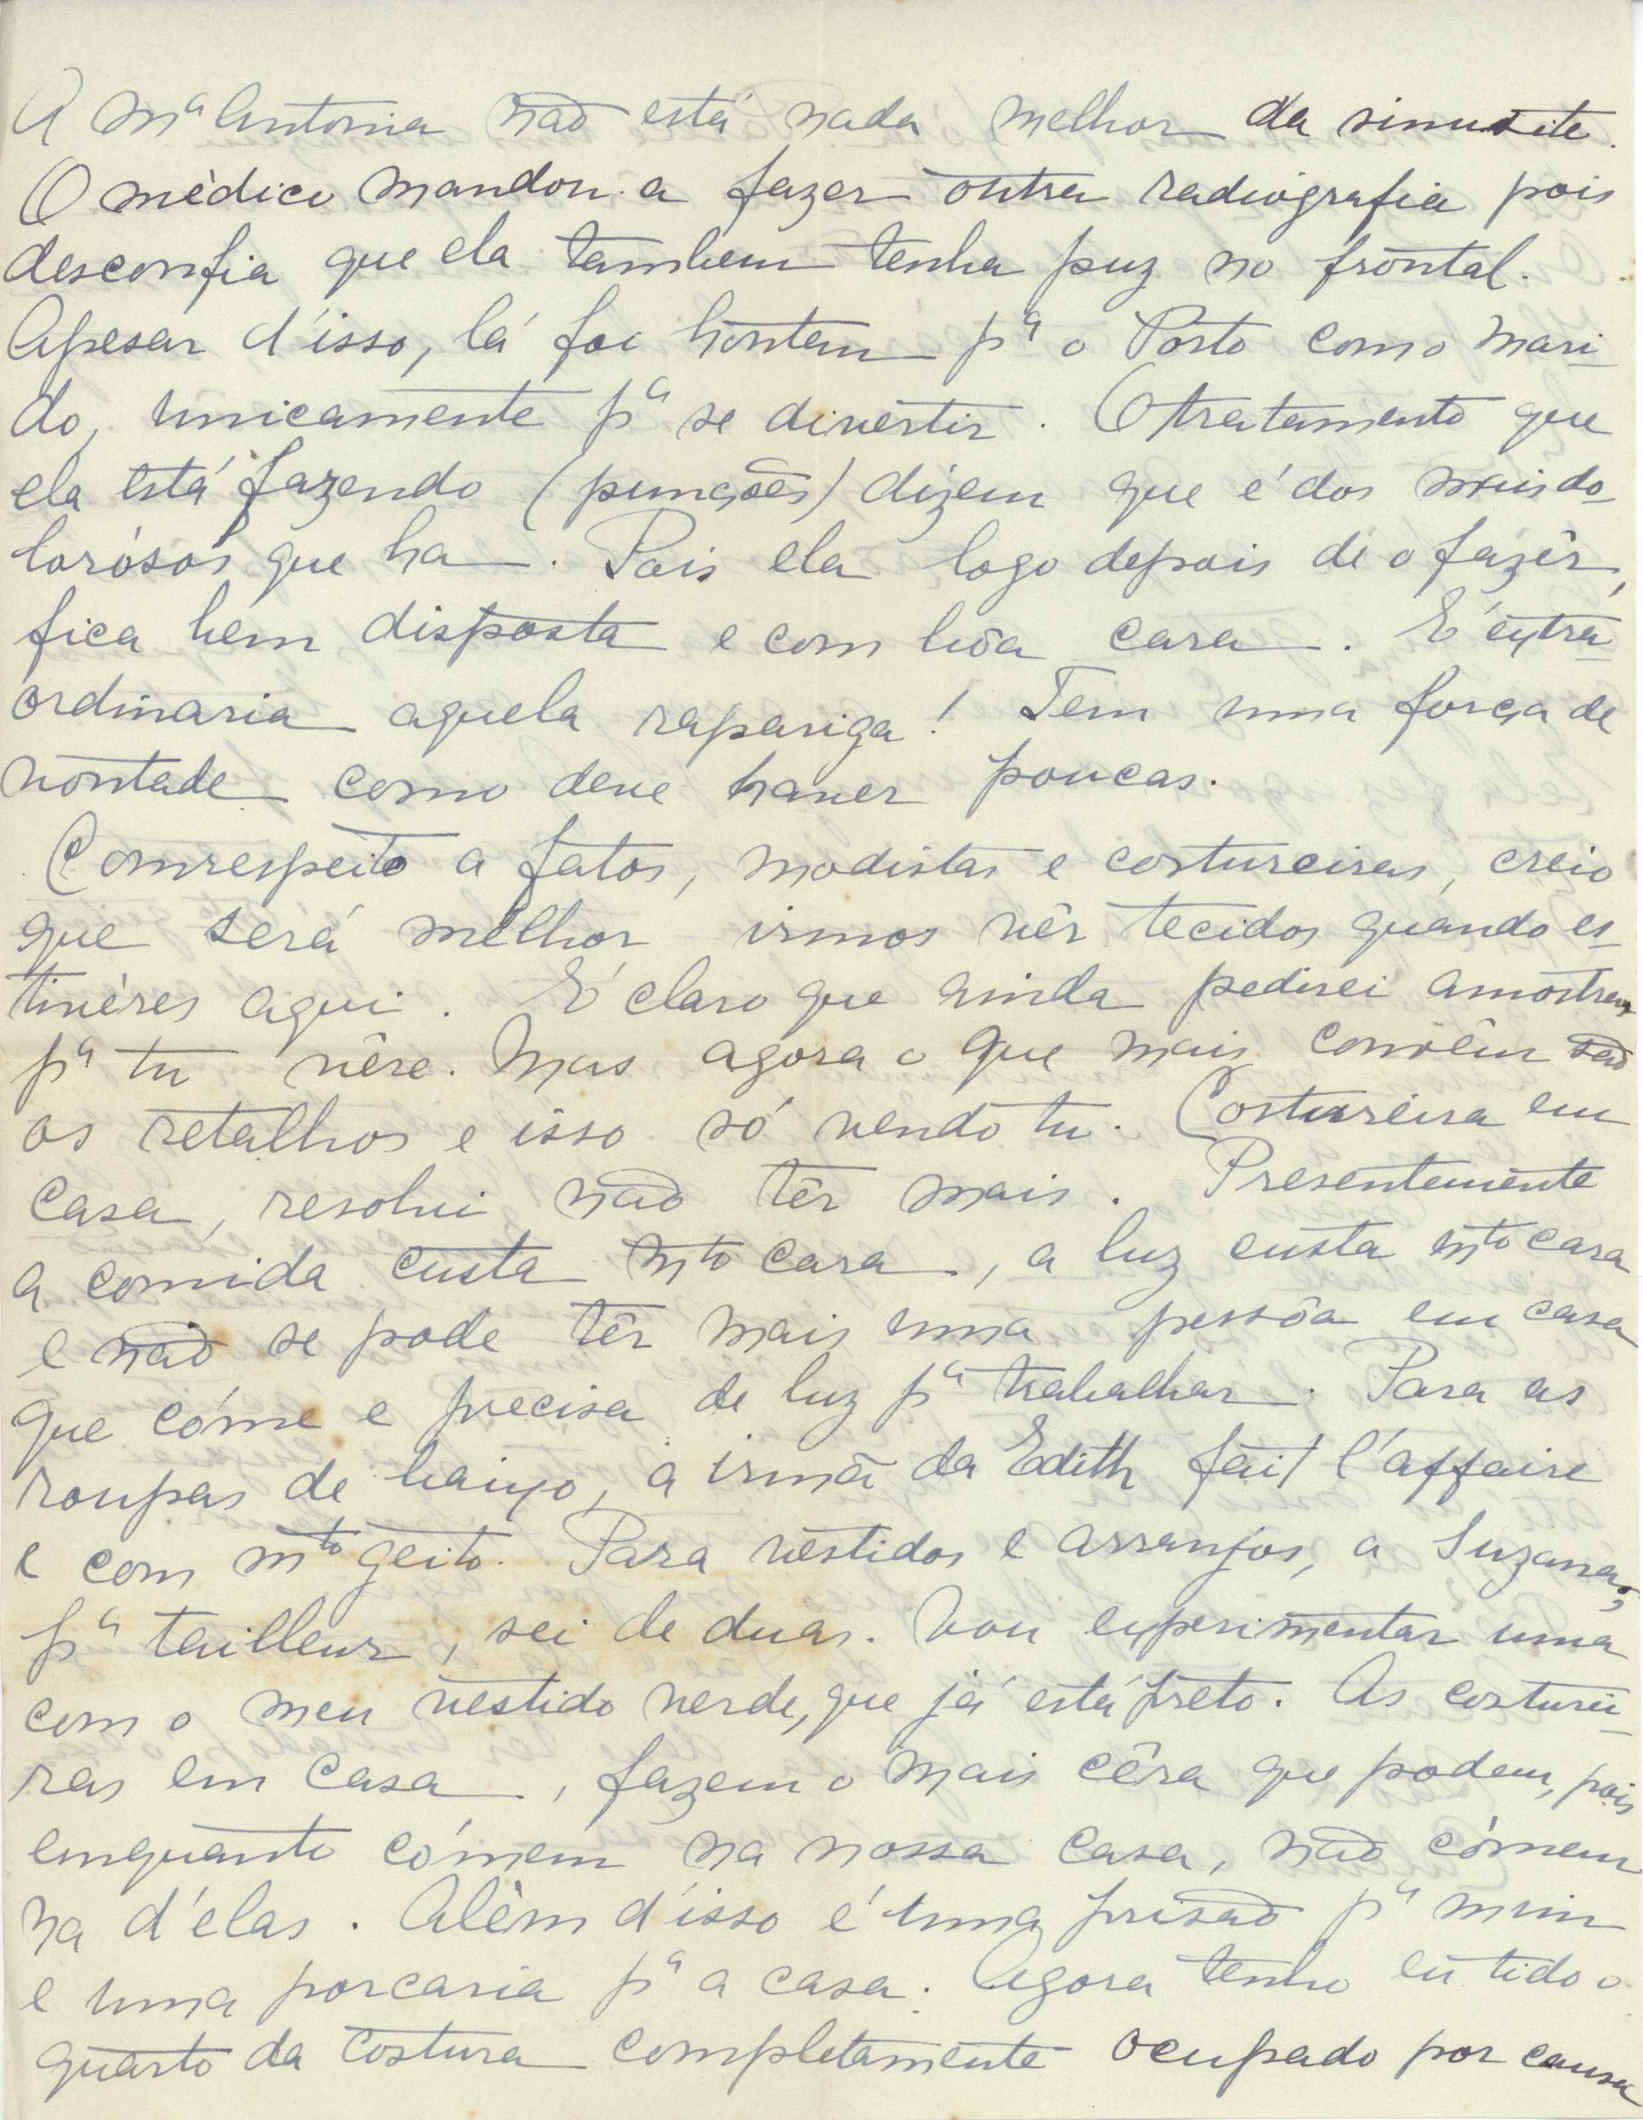 A Mª Antonia não está nada melhor da sinusite.
O médico mandou-a fazer outra radiografia pois
desconfia que ela tambem tenha puz no frontal.
Apesar d'isso, lá foi hontem pª o Porto com o mari-
do, unicamente pª se divertir. O tratamento que
ela está fazendo (punções) dizem que é dos mais do-
lorósos que ha. Pois ela logo depois de o fazêr,
fica bem disposta e com bôa cara. É extra-
ordinaria aquela rapariga! Tem uma força de
vontade como deve haver poucas.
Com respeito a fatos, modistas e costureiras, creio
que será melhor irmos vêr tecidos quando es-
tivéres aqui. É claro que ainda pedirei amostras
pª tu vêre. Mas agora o que mais convêm são
os retalhos e isso só vendo tu. Costureira em
casa, resolvi não têr mais. Presentemente
a comida custa mto cara, a luz custa mto cara
e não se pode têr mais uma pessôa em casa
que cóme e precisa de luz pª trabalhar. Para as
roupas de baixo, a irmã da Edith fait l'affaire
e com mto geito. Para vestidos e arranjos, a Suzana;
pª tailleur, sei de duas. Vou experimentar uma
com o meu vestido verde, que já está preto. As costurei-
ras em casa, fazem o mais cêra que podem, pois
emquanto cómem na nossa casa, não cómem
na d'elas. Além d'isso é uma prisão pª mim
e uma porcaria pª a casa. Agora tenho eu tido o
quarto da costura completamente ocupado por causa